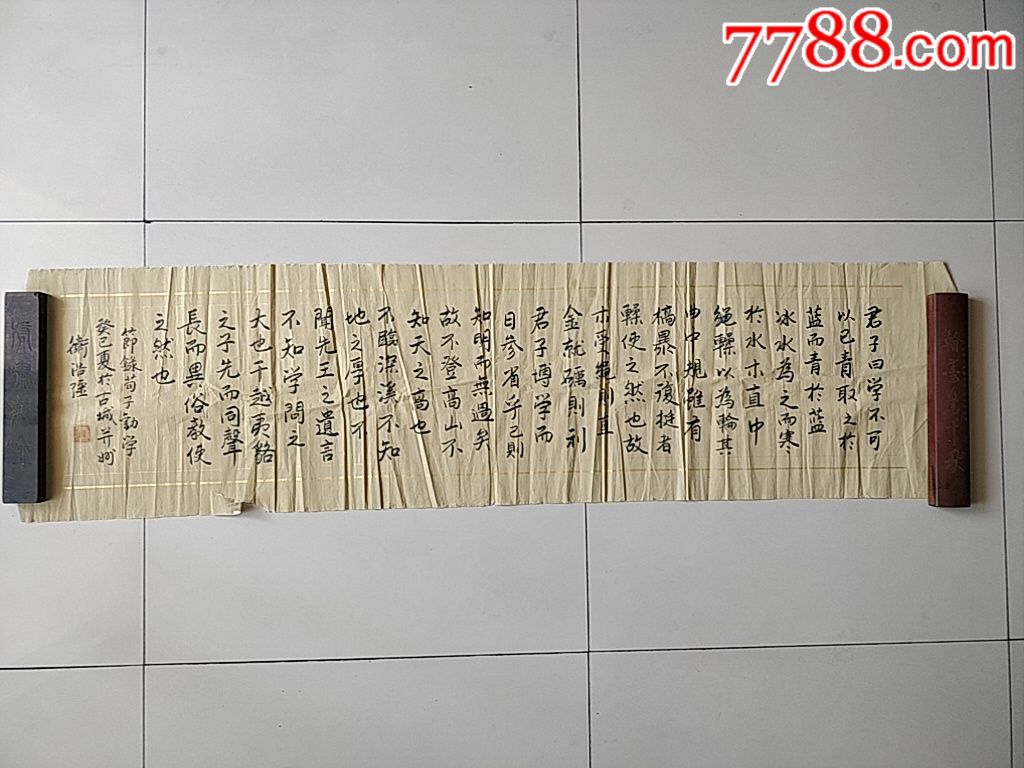 7788.com
君子曰学不可
以已青取之於
蓝而青於蓝
冰水為之而寒
於水木直中
繩輮以為輪其
曲中規雖有
槁暴不復挺者
輮使之然也故
木受繩則直
金就礪則利
君子博学而
日參省乎己則
知明而無過矣
故不登高山不
知天之高也
不臨深溪不知
地之厚也不
聞先王之遺言
不知学問之
大也于越夷貉
之子先而同聲
長而異俗教使
之然也
節錄荀子勸学
癸巳夏於古城并州
衛浩